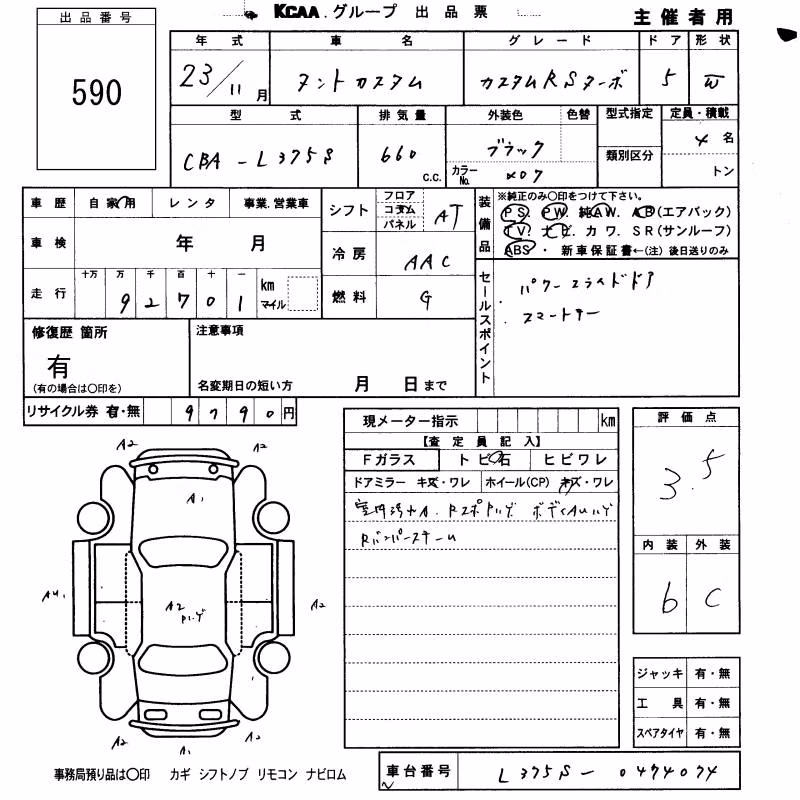 KCAA.グループ 出品票
主催者用
出品番号
590
年式 車名 グレード ドア 形状
23/11月 タントカスタム カスタムRSターボ 5 W
型式 排気量 外装色 色替 型式指定 定員・積載
CBA-L375S 660 C.C. ブラック 4名
カラーNo. X07 類別区分 トン
車歴 自家用 レンタ 事業.営業車
車検 年 月
走行 十万 万 千 百 十 一
92701 km マイル
シフト フロア コラム パネル AT
冷房 AAC
燃料 G
装備品 ※純正のみ〇印をつけて下さい。
PS. PW. 純AW. AB(エアバック)
TV. ナビ. カワ. SR(サンルーフ)
ABS ・ 新車保証書←(注)後日送りのみ
セールスポイント
パワースライドドア
スマートキー
修復歴 箇所
有
(有の場合は〇印を)
注意事項
名変期日の短い方 月 日まで
リサイクル券 有・無 9790円
現メーター指示 km
【査定員記入】
Fガラス トビ石 ヒビワレ
ドアミラー キズ・ワレ ホイール(CP) キズ・ワレ
室内汚れA. Rスポトハゲ ボディAUハゲ
Rバンパースチーム
評価点
3.5
内装 外装
b C
ジャッキ 有・無
工具 有・無
スペアタイヤ 有・無
A2 A2
A1
A4 A2 A2
A2 A1 A2
事務局預り品は〇印 カギ シフトノブ リモコン ナビロム
車台番号 L375S-0474074